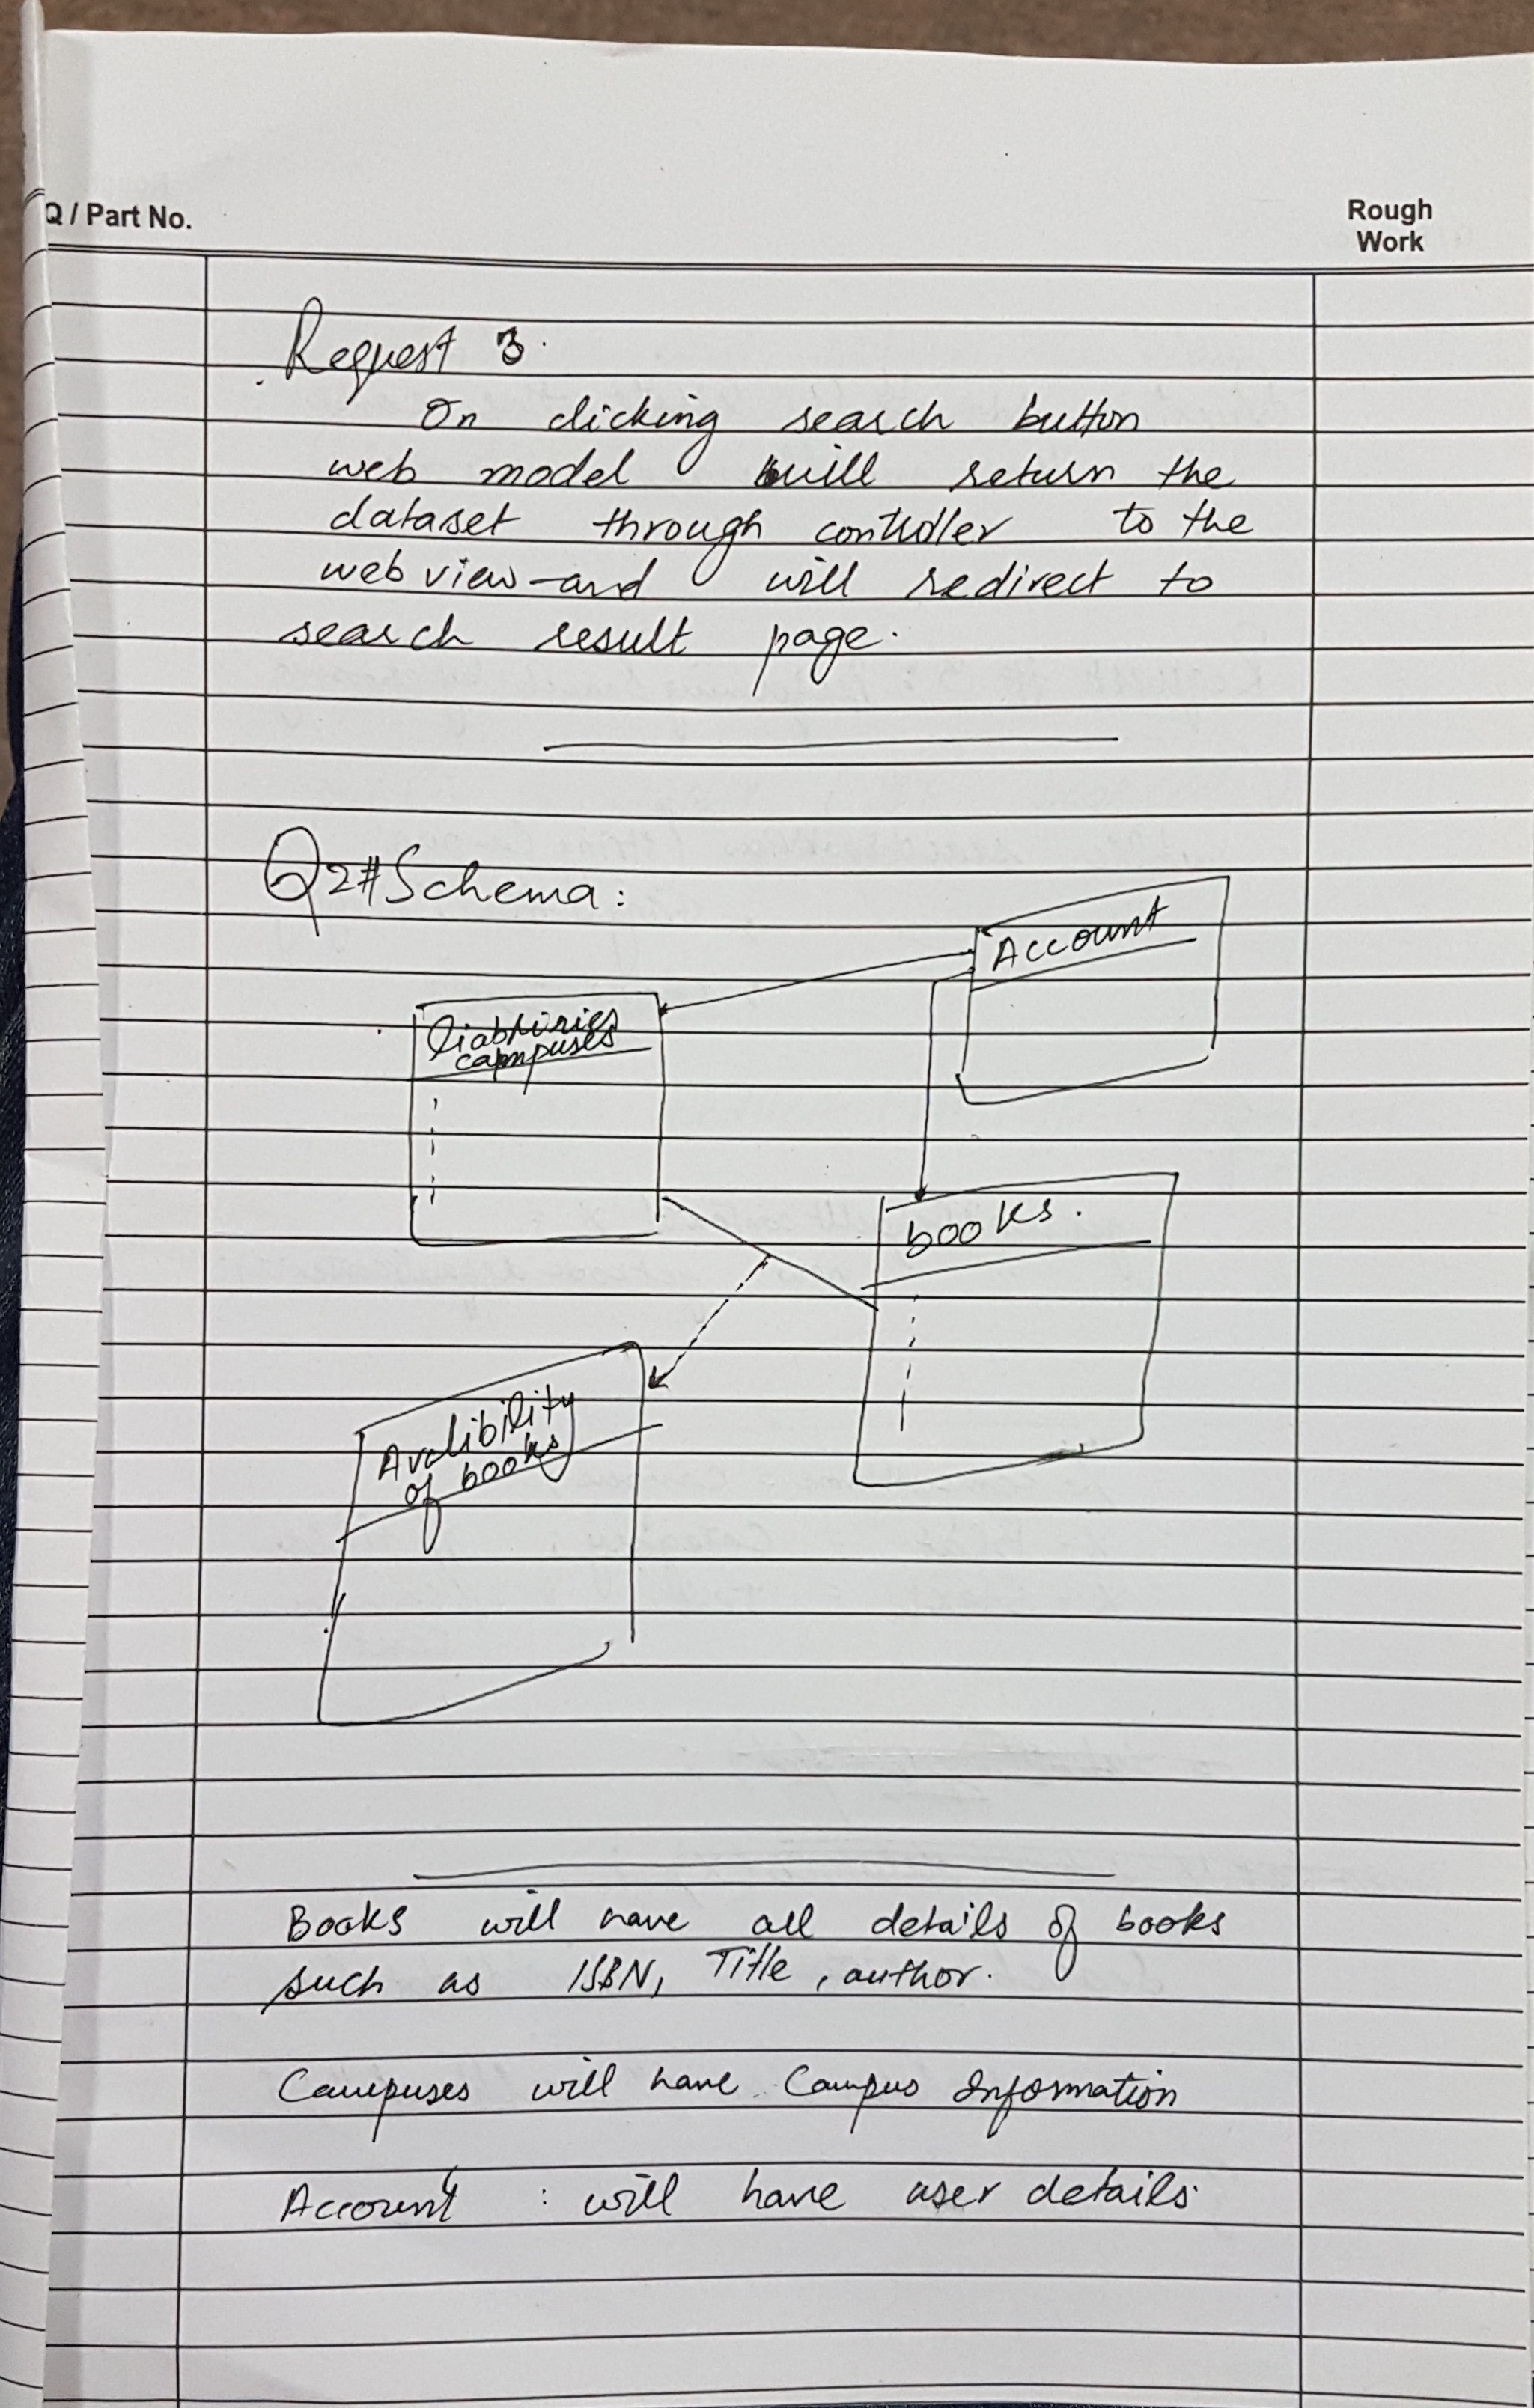 Q / Part No.
Rough
Work
Request 3.
On clicking search button
web model will return the
dataset through controller to the
web view and will redirect to
search result page.
Q2#Schema:
Account
campuses
books.
Avalibility
of books
Books will have all details of books
such as ISBN, Title, author.
Campuses will have Campus Information
Account : will have user details.